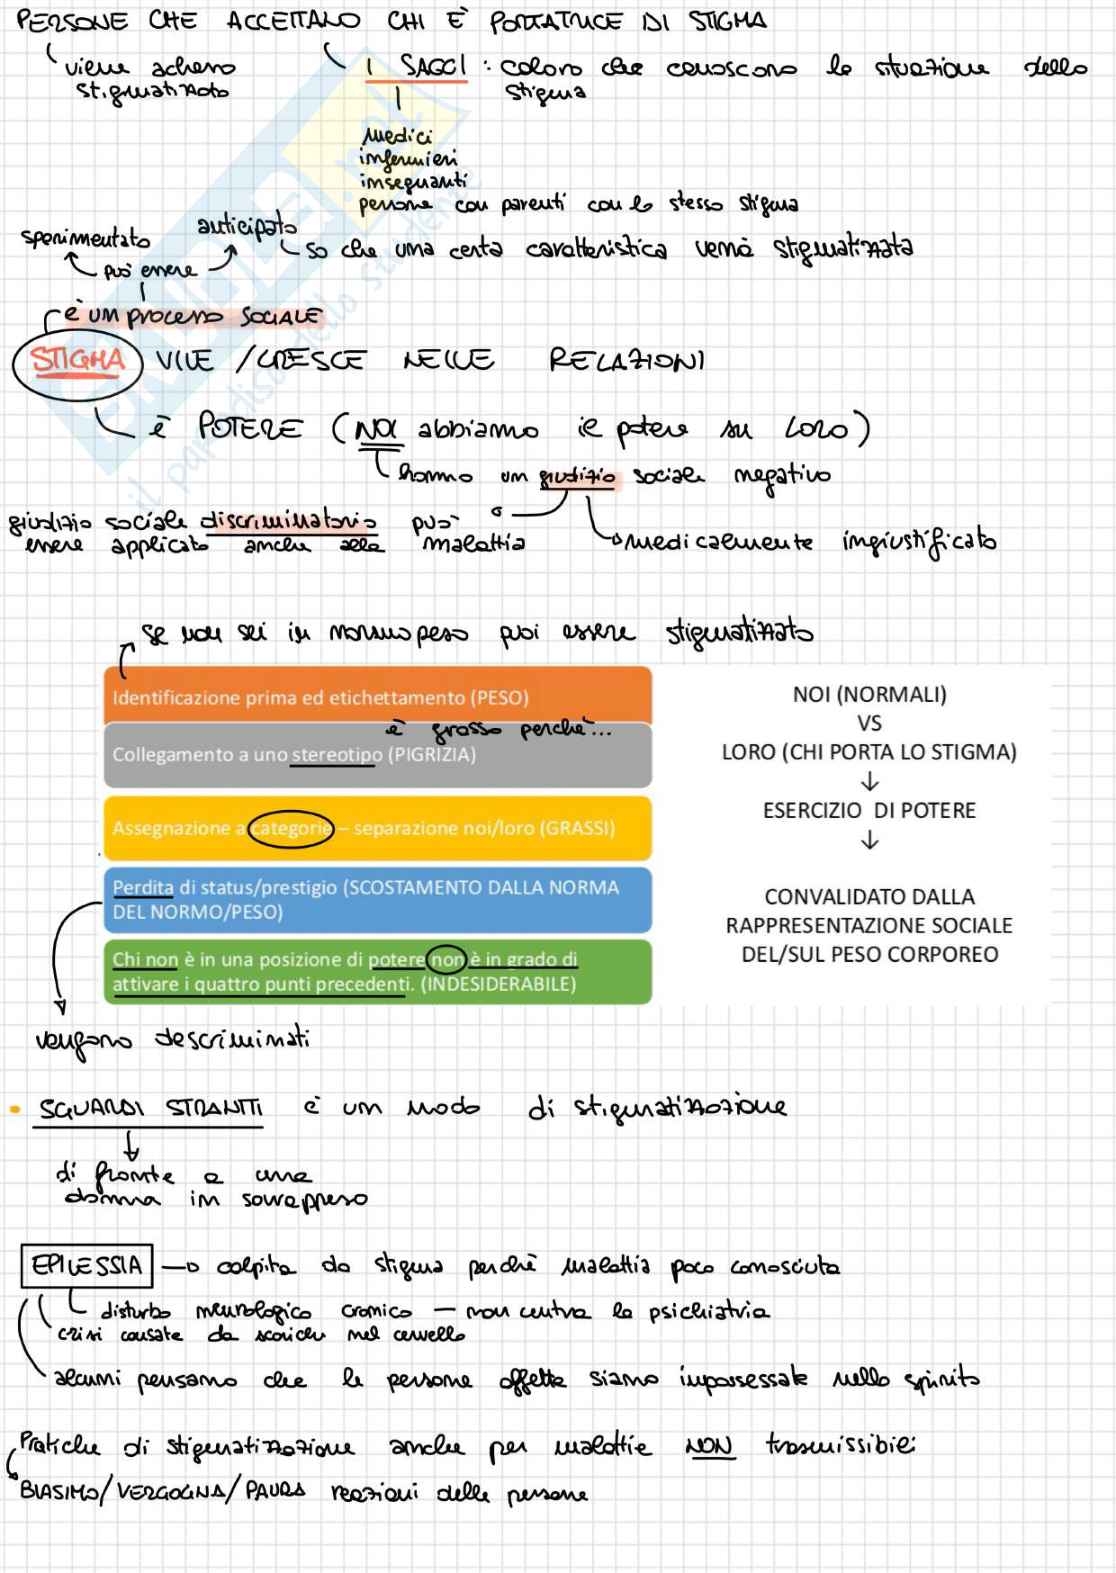 PERSONE CHE ACCETTANO CHI È PORTATRICE DI STIGMA
viene acheno
stigmatizzato
I SAGGI : coloro che conoscono la situazione dello
stigma
medici
infermieri
insegnanti
persone con parenti con lo stesso stigma
sperimentato
anticipato
so che una certa caratteristica verrà stigmatizzata
può essere
è un processo SOCIALE
STIGMA VIVE / CRESCE NELLE RELAZIONI
è POTERE (NOI abbiamo il potere su LORO)
hanno un giudizio sociale negativo
giudizio sociale discriminatorio può
essere applicato anche alla malattia
medicalmente ingiustificato
se non sei in normopeso puoi essere stigmatizzato
Identificazione prima ed etichettamento (PESO)
è grosso perché...
Collegamento a uno stereotipo (PIGRIZIA)
Assegnazione a categorie – separazione noi/loro (GRASSI)
Perdita di status/prestigio (SCOSTAMENTO DALLA NORMA
DEL NORMO/PESO)
Chi non è in una posizione di potere non è in grado di
attivare i quattro punti precedenti. (INDESIDERABILE)
NOI (NORMALI)
VS
LORO (CHI PORTA LO STIGMA)
↓
ESERCIZIO DI POTERE
↓
CONVALIDATO DALLA
RAPPRESENTAZIONE SOCIALE
DEL/SUL PESO CORPOREO
vengono descriminati
• SGUARDI STRANITI è un modo di stigmatizzazione
di fronte a una
donna in sovrappeso
EPILESSIA → colpita da stigma perchè malattia poco conosciuta
disturbo neurologico cronico – non centra la psichiatria
crisi causate da scariche nel cervello
alcuni pensano che le persone affette siano impossessate nello spirito
Pratiche di stigmatizzazione anche per malattie NON trasmissibili
BIASIMO/VERGOGNA/PAURA reazioni delle persone